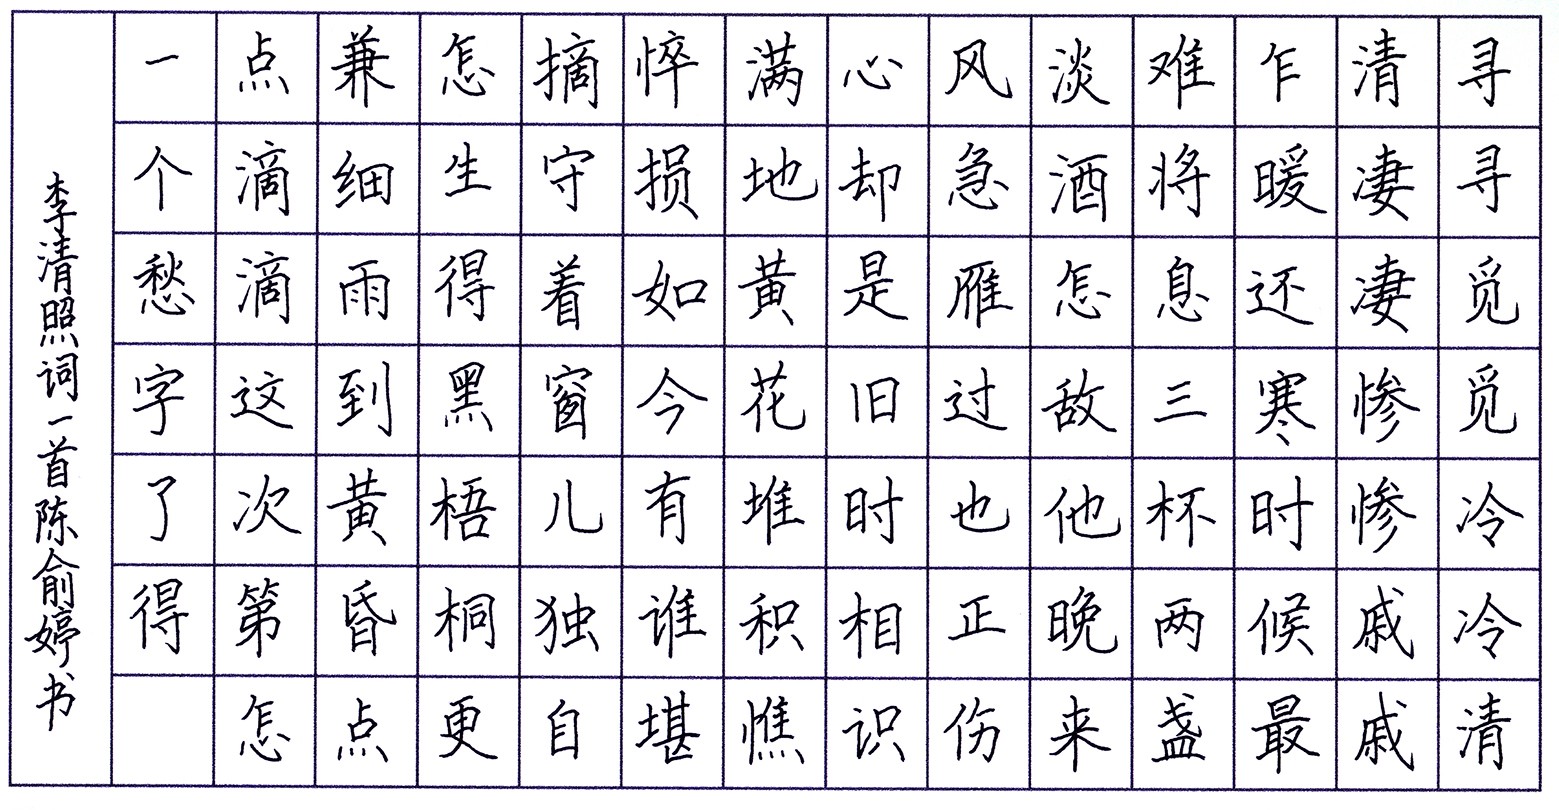 寻寻觅觅冷冷清
清凄凄惨惨戚戚
乍暖还寒时候最
难将息三杯两盏
淡酒怎敌他晚来
风急雁过也正伤
心却是旧时相识
满地黄花堆积憔
悴损如今有谁堪
摘守着窗儿独自
怎生得黑梧桐更
兼细雨到黄昏点
点滴滴这次第怎
一个愁字了得
李清照词一首陈俞婷书